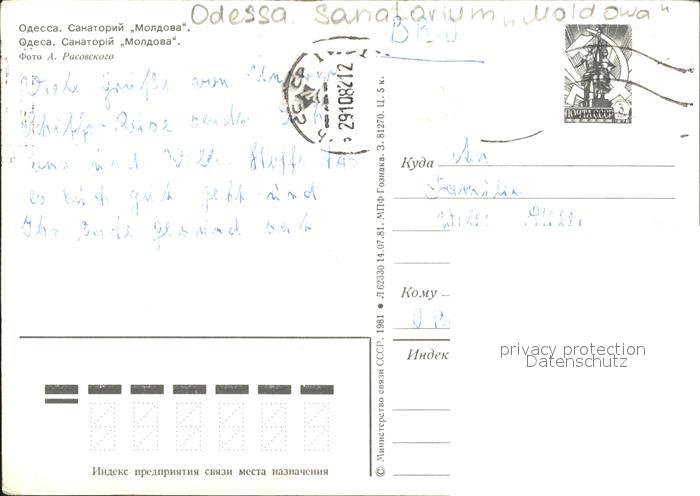 Odessa. Sanatorium „Moldowa“
Одесса. Санаторий „Молдова“.
Одеса. Санаторій „Молдова“.
Фото А. Расовского
BRD
29108212
ПОЧТА СССР
Viele Grüße von unserer
Schiff-Reise senden
und Willi. Hoffe das
es euch gut geht und
Ihr Beide gesund seit
Куда An
Familie
Кому
Индек
© Министерство связи СССР, 1981 ● Л 62330 14.07.81. МПФ Гознака. З. 81270. Ц. 5 к.
Индекс предприятия связи места назначения
privacy protection
Datenschutz